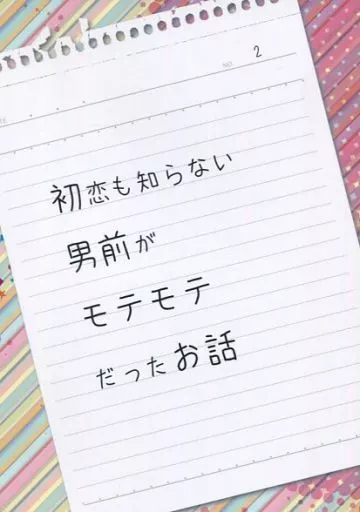 NO. 2
初恋も知らない
男前が
モテモテ
だったお話